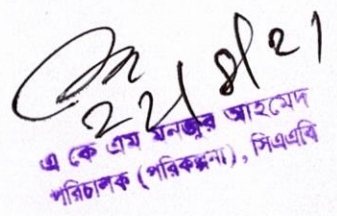 ২২/৪/২১
এ কে এম মনজুর আহমেদ
পরিচালক (পরিকল্পনা), সিএএবি